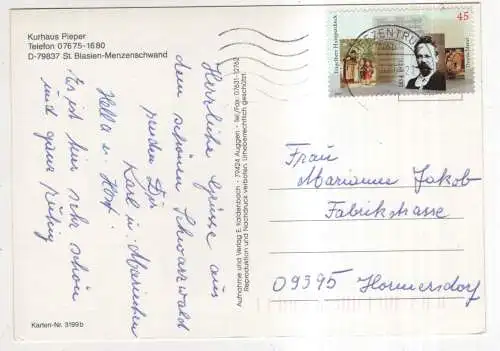 Kurhaus Pieper
Telefon 07675-1680
D-79837 St. Blasien-Menzenschwand
Herrliche Grüsse aus
dem schönen Schwarzwald
senden Dir
Karl u. Mariechen
Hella u. Horst
Es ist hier sehr schön
und ganz ruhig
Karten-Nr. 3199b
Aufnahme und Verlag E. Kaldenbach - 79424 Auggen - Tel./Fax 07631-12762
Reproduktion und Nachdruck verboten. Urheberrechtlich geschützt
Engelbert Humperdinck
45
Deutschland
BRIEFZENTRUM
Frau
Marianne Jakob
Fabrikstrasse
09395 Hormersdorf